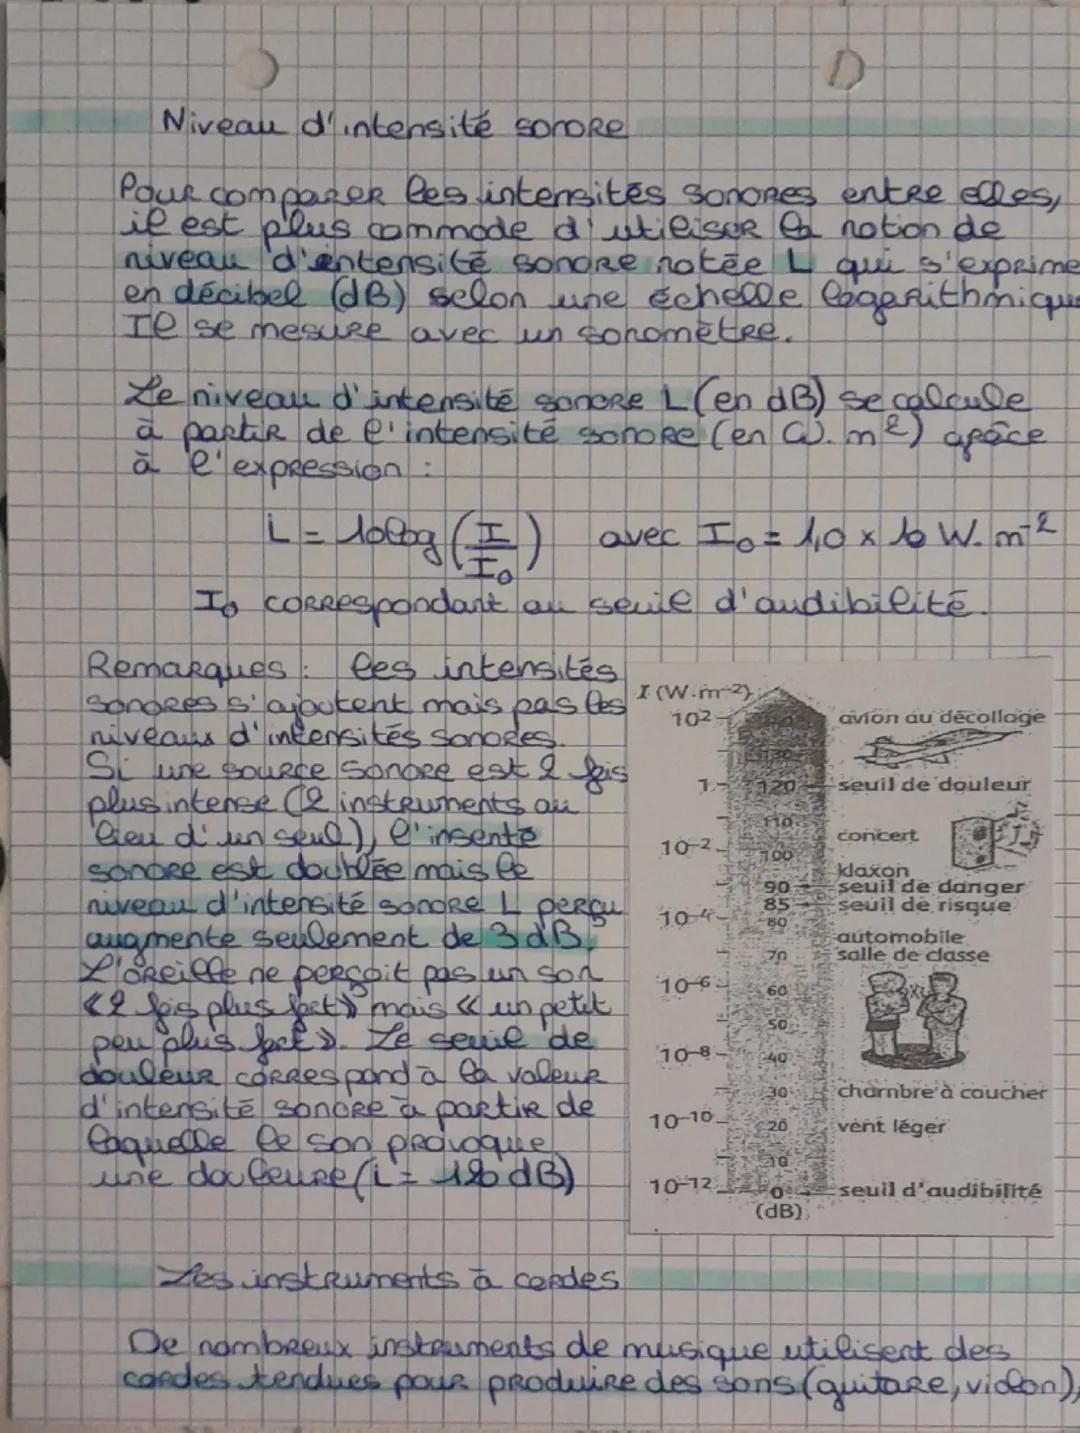 Niveau d'intensité sonore
Pour comparer les intensités sonores entre elles,
il est plus commode d'utiliser la notion de
niveau d'intensité sonore notée L qui s'exprime
en décibel (dB) selon une échelle logarithmique
Il se mesure avec un sonomètre.
Le niveau d'intensité sonore L (en dB) se calcule
à partir de l'intensité sonore (en W. m²) grâce
à l'expression :
L = 10log (I/I₀) avec I₀ = 1,0 x 10 W. m⁻²
I₀ correspondant au seuil d'audibilité.
Remarques : les intensités
sonores s'ajoutent mais pas les
niveaux d'intensités sonores.
Si une source sonore est 2 fois
plus intense (2 instruments au
lieu d'un seul), l'insenté
sonore est doublée mais le
niveau d'intensité sonore L perçu
augmente seulement de 3 dB.
L'oreille ne perçoit pas un son
« 2 fois plus fort » mais « un petit
peu plus fort ». Le seuil de
douleur correspond à la valeur
d'intensité sonore à partir de
laquelle le son provoque
une douleure (L = 120 dB)
I (W.m⁻²)
10² avion au décollage
130
1 120 seuil de douleur
110
concert
10⁻² 100
klaxon
90 seuil de danger
85 seuil de risque
10⁻⁴ 80
automobile
70 salle de classe
10⁻⁶ 60
50
10⁻⁸ 40
30 chambre à coucher
10⁻¹⁰ 20 vent léger
10
10⁻¹² 0 seuil d'audibilité
(dB)
Les instruments à cordes
De nombreux instruments de musique utilisent des
cordes tendues pour produire des sons (guitare, violon),